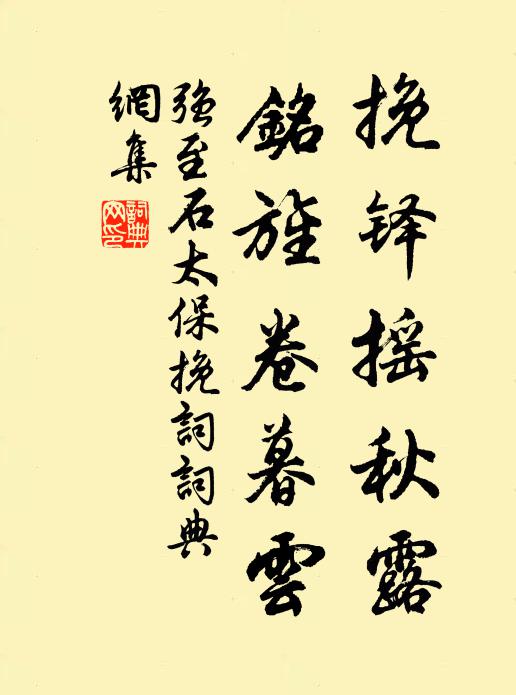 挽铎摇秋露
銘旌卷暮雲
强至石太保挽詞詞典
網集
詞典
网印